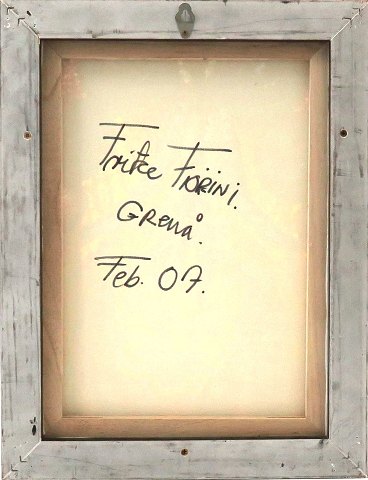 Fritze Fiorini.
GRENÅ.
Feb. 07.